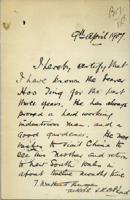 9th April 1907.
I hereby certify that
I have known the bearer
Has Ding for the past
three years. He has always
proved a hard working
industrious man and a
Good gardener. He now
wishes to visit China to
see his mother and return
to New South Wales in
about twelve months time